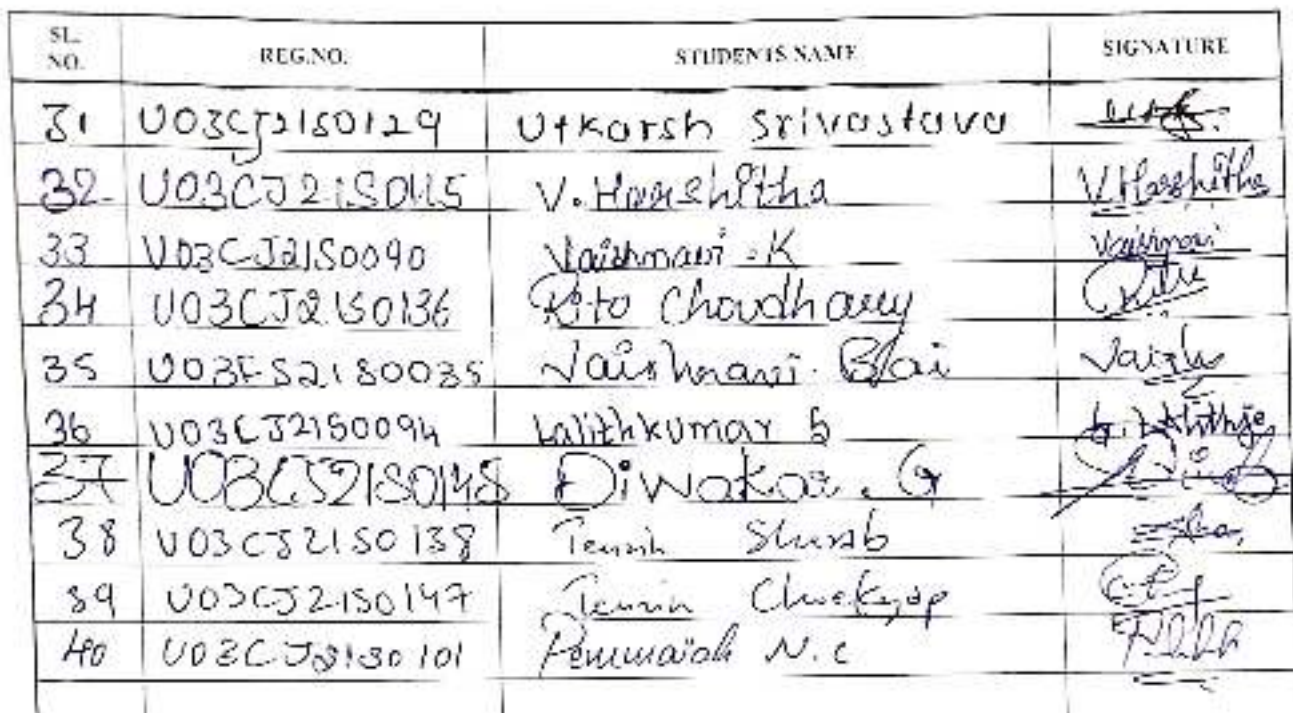 SL. NO. REG.NO. STUDENTS NAME SIGNATURE
31 U03CJ21S0129 Utkarsh Srivastava
32 U03CJ21S0115 V. Harshitha V.Harshitha
33 U03CJ21S0090 Vaishnavi .K Vaishnavi
34 U03CJ21S0136 Ritu Choudhary Ritu
35 U03FS21S0035 Vaishnavi Blai Vaish
36 U03CJ21S0094 Lalithkumar S
37 U03CJ21S0148 Diwakar . G
38 U03CJ21S0138 Tenzin Sherab
39 U03CJ21S0147 Tenzin Choekyap
40 U03CJ21S0101 Pemmaiah N.C